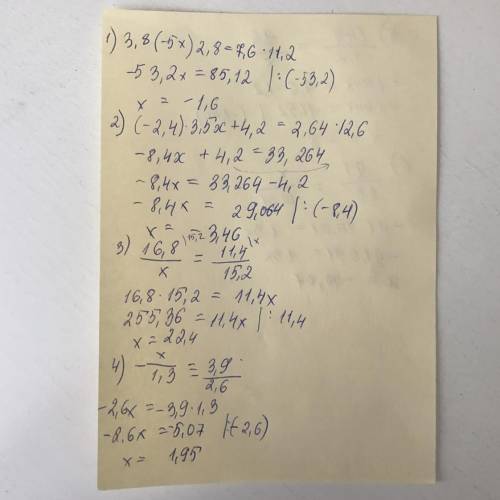 1) 3,8(-5x)2,8=7,6·11,2
-53,2x=85,12 |:(-53,2)
x = -1,6
2) (-2,4)·3,5x+4,2=2,64·12,6
-8,4x + 4,2=33,264
-8,4x=33,264-4,2
-8,4x= 29,064 |:(-8,4)
x= 3,46
3) 16,8/x \15,2 = 11,4/15,2 \x
16,8·15,2=11,4x
255,36=11,4x |:11,4
x=22,4
4) -x/1,3=3,9/2,6
-2,6x=-3,9·1,3
-2,6x=-5,07 |(-2,6)
x= 1,95